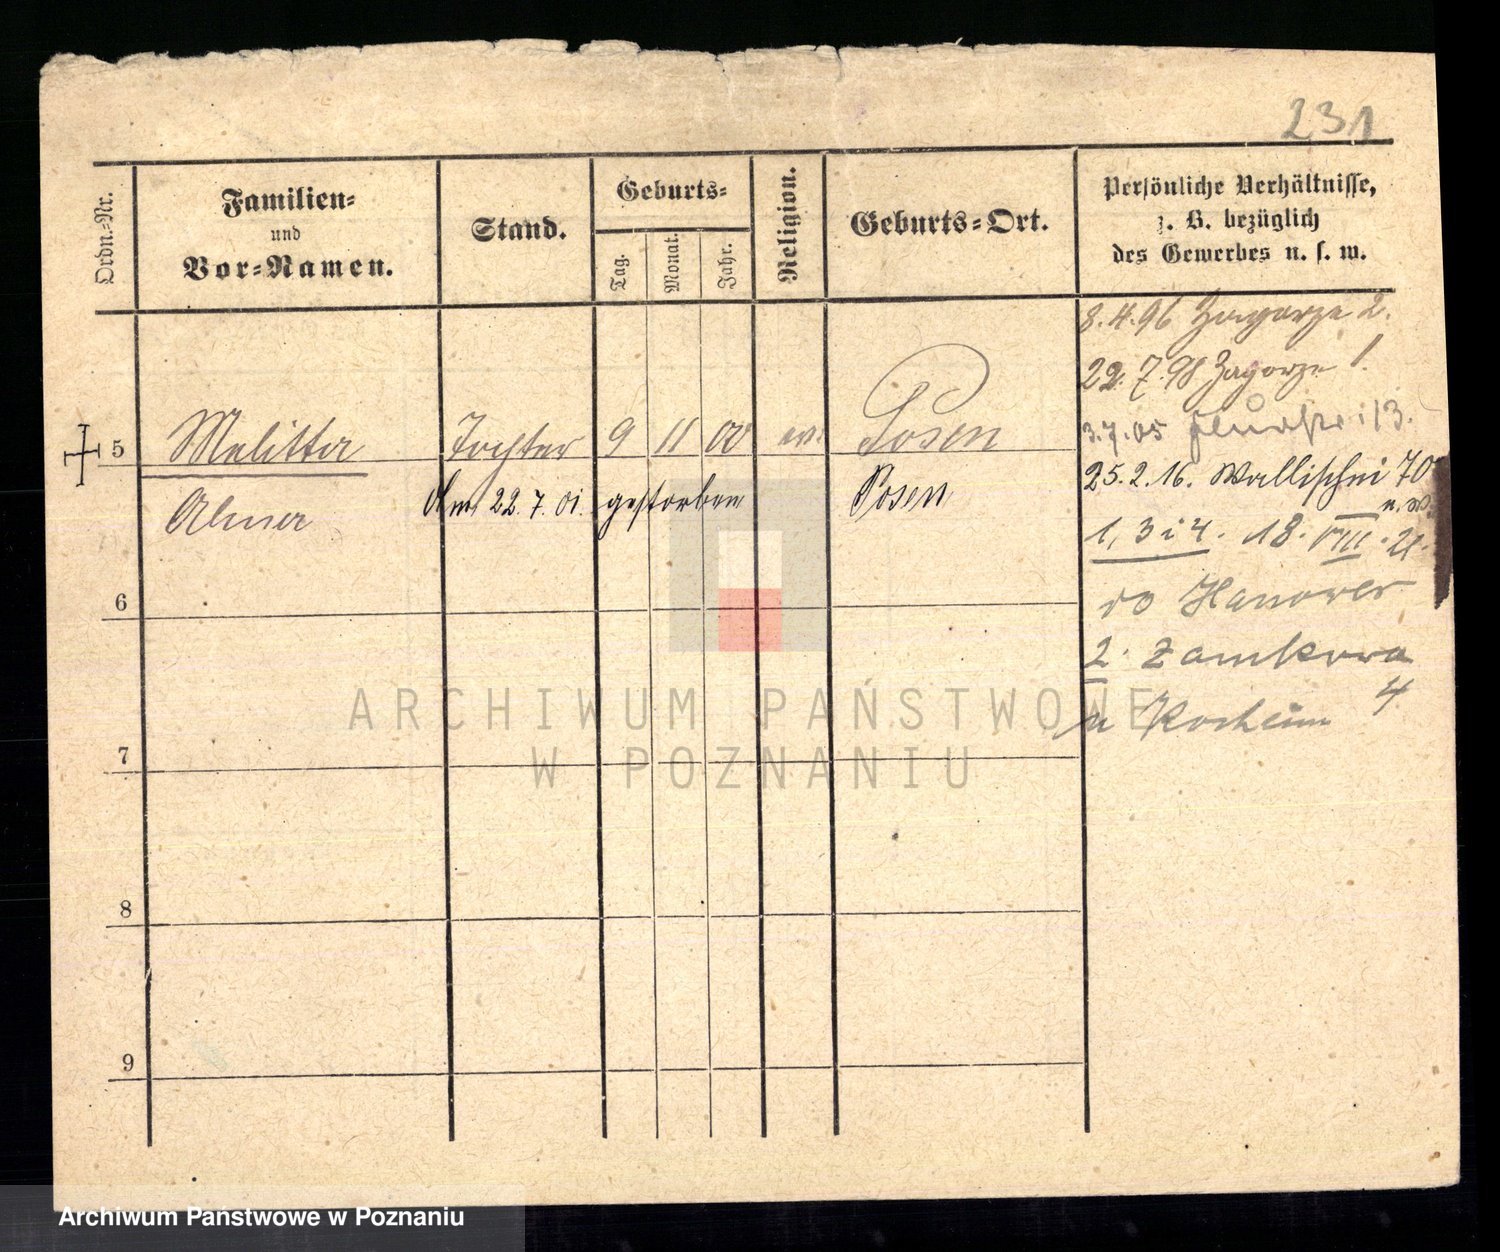 231
Ordn.-Nr.
Familien-
und
Vor-Namen.
Stand.
Geburts-
Tag.
Monat.
Jahr.
Religion.
Geburts-Ort.
Persönliche Verhältnisse,
z. B. bezüglich
des Gewerbes u. s. w.
8.4.96 Zagorze 2.
22.7.98 Zagorze 1.
5 Melitta Tochter 9 11 00 ev. Posen
3.7.05
Alma Am 22.7.01. gestorben Posen
25.2.16. Wallischei 70
1, 3 i 4. 18. VIII. 21.
do Hanower
2. Zamkowa
4
u Kocheim
6
7
8
9
ARCHIWUM PAŃSTWOWE
W POZNANIU
Archiwum Państwowe w Poznaniu